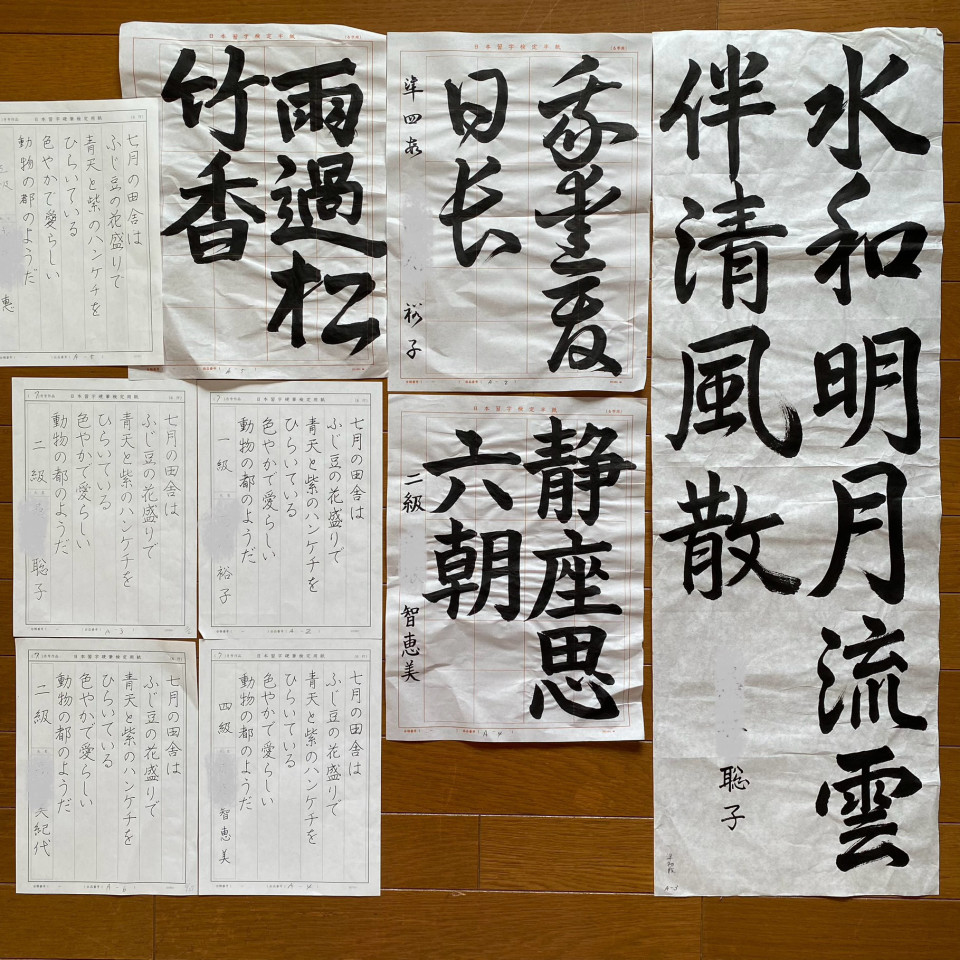 日本習字検定半紙
雨過松
竹香
日本習字検定半紙
我愛夏
日長
準四段 裕子
水和明月流雲
伴清風散
聡子
日本習字硬筆検定用紙
七月の田舎は
ふじ豆の花盛りで
青天と紫のハンケチを
ひらいている
色やかで愛らしい
動物の都のようだ
恵
日本習字硬筆検定用紙
七月の田舎は
ふじ豆の花盛りで
青天と紫のハンケチを
ひらいている
色やかで愛らしい
動物の都のようだ
二級 聡子
日本習字硬筆検定用紙
七月の田舎は
ふじ豆の花盛りで
青天と紫のハンケチを
ひらいている
色やかで愛らしい
動物の都のようだ
一級 裕子
日本習字検定半紙
静座思
六朝
二級 智恵美
日本習字硬筆検定用紙
七月の田舎は
ふじ豆の花盛りで
青天と紫のハンケチを
ひらいている
色やかで愛らしい
動物の都のようだ
二級 紀代
日本習字硬筆検定用紙
七月の田舎は
ふじ豆の花盛りで
青天と紫のハンケチを
ひらいている
色やかで愛らしい
動物の都のようだ
四級 智恵美